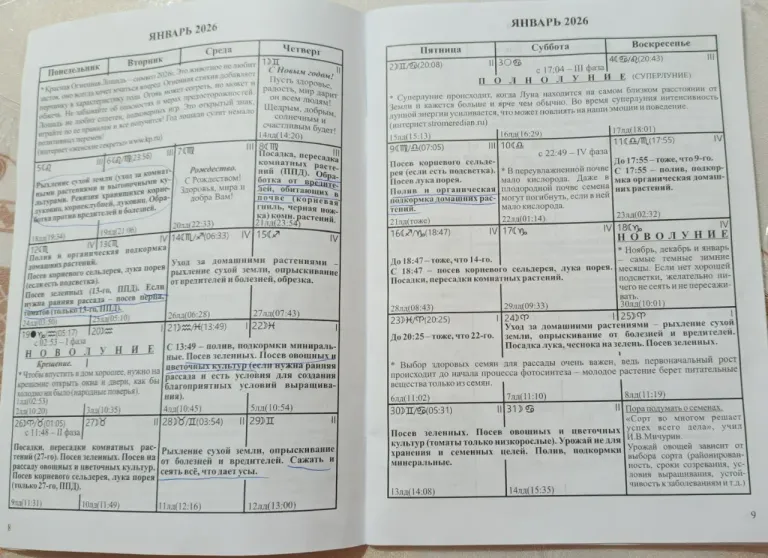 ЯНВАРЬ 2026
Понедельник
Вторник
Среда
Четверг
* Красная Огненная Лошадь – символ 2026г. Это животное не любит
застоя, оно всегда хочет мчаться вперед. Огненная стихия добавляет
характеру года. Огонь может согреть, но может и
обжечь. Не забывайте об опасности и мерах предосторожности.
Лошадь не любит
играйте по ее правилам и все получится! Год лошади сулит немало
позитивных перемен!
(интернет www.kp.ru)
1 II
С Новым годом!
Пусть здоровье,
радость, мир дарит
он всем людям!
Щедрым, добрым,
солнечным и
счастливым будет!
14лд(14:20)
5 III
6 (23:58) III
Рыхление сухой земли (уход за комнат-
ными растениями и выгоночными ку-
льтурами. Ревизия хранящихся корне-
луковиц, корнеклубней, луковиц. Обра-
ботка против вредителей и болезней.
18лд(19:34)
19лд(21:06)
7 III
Рождество.
С Рождеством!
Здоровья, мира и
добра Вам!
20лд(22:33)
8 III
Посадка, пересадка
комнатных расте-
ний (ППД). Обра-
ботка от вредите-
лей, обитающих в
почве (корневая
гниль, черная нож-
ка) комн. растений.
21лд(23:54)
12 IV
13 IV
Полив и органическая подкормка
домашних растений.
Посев корневого сельдерея, лука порея
(если есть подсветка).
Посев зеленных (13-го, ППД). Если
нужна ранняя рассада – посев перца,
томатов (только 13-го, ППД).
24лд(03:50)
25лд(05:10)
14 (06:33) IV
15 IV
Уход за домашними растениями –
рыхление сухой земли, опрыскивание
от вредителей и болезней, обрезка.
26лд(06:28)
27лд(07:43)
19 (05:17) I
20 I
с 02:53 – I фаза
НОВОЛУНИЕ
Крещение.
*Чтобы впустить в дом хорошее, нужно на
крещение открыть окна и двери, как бы
холодно ни было (народные поверья).
1лд(02:53)
2лд(10:20)
3лд(10:35)
21 (13:49) I
22 I
С 13:49 – полив, подкормки минераль-
ные. Посев зеленных. Посев овощных и
цветочных культур (если нужна ранняя
рассада и есть условия для создания
благоприятных условий выращива-
ния).
4лд(10:45)
5лд(10:54)
26 (01:05) II
27 II
с 11:48 – II фаза
Посадки, пересадки комнатных рас-
тений (27-го). Посев зеленных. Посев на
рассаду овощных и цветочных культур.
Посев корневого сельдерея, лука порея
(только 27-го, ППД).
9лд(11:31)
10лд(11:49)
28 (03:54) II
29 II
Рыхление сухой земли, опрыскивание
от болезней и вредителей. Сажать и
сеять всё, что дает усы.
11лд(12:16)
12лд(13:00)
8
ЯНВАРЬ 2026
Пятница
Суббота
Воскресенье
2 (20:08) II
3
4 (20:43) III
с 17:04 – III фаза
ПОЛНОЛУНИЕ (СУПЕРЛУНИЕ)
* Суперлуние происходит, когда Луна находится на самом близком расстоянии от
Земли и кажется больше и ярче чем обычно. Во время суперлуния интенсивность
лунной энергии усиливается, что может повлиять на наши эмоции и поведение.
15лд(15:13)
16лд(16:29)
17лд(18:01)
9 (07:05) III
Посев корневого сельде-
рея (если есть подсветка).
Посев лука порея.
Полив и органическая
подкормка домашних рас-
тений.
21лд(тоже)
10
с 22:49 – IV фаза
* В переувлажненной почве
мало кислорода. Даже в
плодородной почве семена
могут погибнуть, если в ней
мало кислорода.
22лд(01:14)
11 (17:55) IV
До 17:55 – тоже, что 9-го.
С 17:55 – полив, подкор-
мка органическая домаш-
них растений.
23лд(02:32)
16 (18:47) IV
17 IV
До 18:47 – тоже, что 14-го.
С 18:47 – посев корневого сельдерея, лука порея.
Посадки, пересадки комнатных растений.
28лд(08:43)
29лд(09:33)
18 IV
НОВОЛУНИЕ
* Ноябрь, декабрь и январь
– самые темные зимние
месяцы. Если нет хорошей
подсветки, желательно ни-
чего не сеять и не пересажи-
вать.
30лд(10:01)
23 (20:25) I
До 20:25 – тоже, что 22-го.
24 I
25 I
Уход за домашними растениями – рыхление сухой
земли, опрыскивание от вредителей и болезней.
Посадка лука, чеснока на зелень. Посев зеленных.
* Выбор здоровых семян для рассады очень важен, ведь первоначальный рост
происходит до начала процесса фотосинтеза – молодое растение берет питательные
вещества только из семян.
6лд(11:02)
7лд(11:10)
8лд(11:19)
30 (05:31) II
31 II
Посев зеленных. Посев овощных и цветочных
культур (томаты только низкорослые). Урожай не для
хранения и семенных целей. Полив, подкормки
минеральные.
13лд(14:08)
14лд(15:35)
Пора подумать о семенах.
«Сорт во многом решает
успех всего дела», учил
И.В.Мичурин.
Урожай овощей зависит от
выбора сорта (районирован-
ность, сроки созревания, ус-
ловия выращивания, устой-
чивость к заболеваниям и т.д.)
9